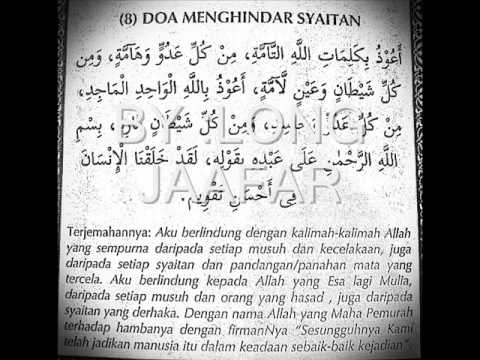 (8) DOA MENGHINDAR SYAITAN
أَعُوْذُ بِكَلِمَاتِ اللَّهِ التَّآمَّةِ، مِنْ كُلِّ عَدُوٍّ وَهَآمَّةٍ، وَمِن
كُلِّ شَيْطَانٍ وَعَيْنٍ لَّآمَّةٍ، أَعُوْذُ بِاللَّهِ الْوَاحِدِ الْمَاجِدِ،
مِنْ كُلِّ عَدُوٍّ وَحَاسِدٍ، وَمِنْ كُلِّ شَيْطَانٍ، بِسْمِ
اللَّهِ الرَّحْمٰنِ عَلَى عَبْدِهِ بِقَوْلِهِ، لَقَدْ خَلَقْنَا الْإِنْسَانَ
فِى أَحْسَنِ تَقْوِيْمٍ.
BY.LONG
JAAFAR
Terjemahannya: Aku berlindung dengan kalimah-kalimah Allah
yang sempurna daripada setiap musuh dan kecelakaan, juga
daripada setiap syaitan dan pandangan/panahan mata yang
tercela. Aku berlindung kepada Allah yang Esa lagi Mulia,
daripada setiap musuh dan orang yang hasad , juga daripada
syaitan yang derhaka. Dengan nama Allah yang Maha Pemurah
terhadap hambanya dengan firmanNya "Sesungguhnya Kami
telah jadikan manusia itu dalam keadaan sebaik-baik kejadian".